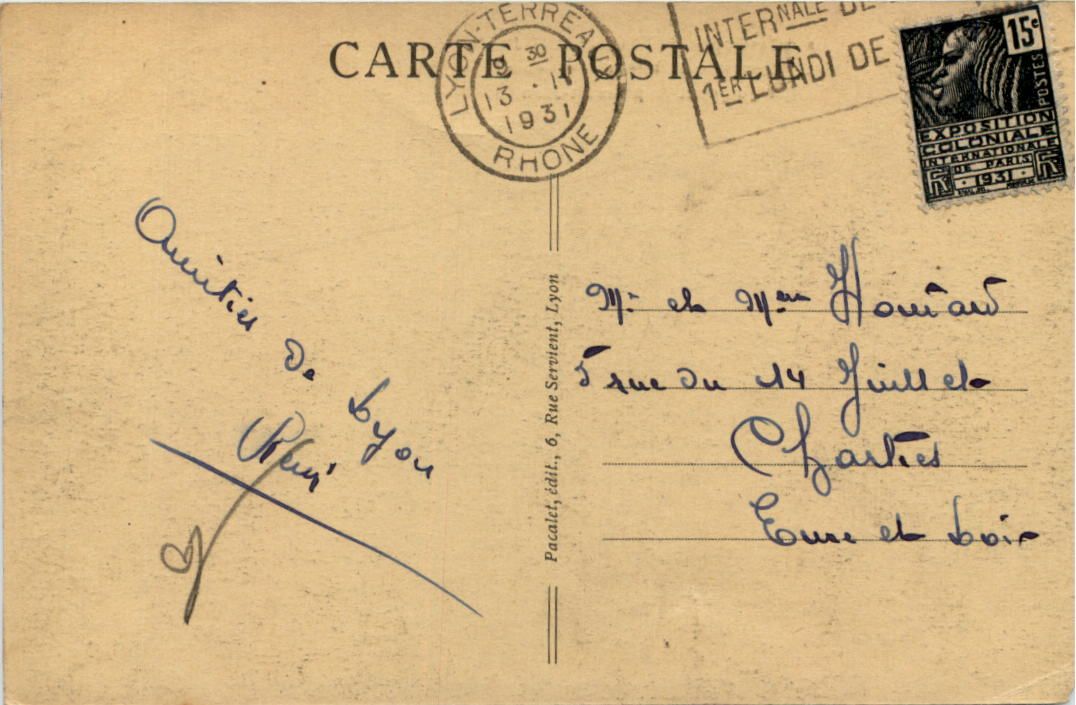 CARTE POSTALE
LYON-TERREAUX
9 30
13 . II
1931
RHONE
INTERNALE DE
1ER LUNDI DE
15c
POSTES
EXPOSITION
COLONIALE
INTERNATIONALE
DE PARIS
1931
Amitiés
de
Lyon
René
Pacalet, édit., 6, Rue Servient, Lyon
Mr et Mme
5 rue du 14 Juillet
Chartres
Eure et Loir